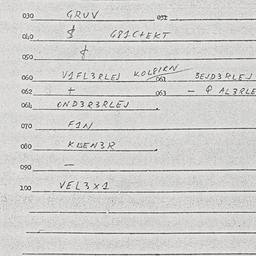 030 GRUV 032
040 $ GBICTEKT
050
060 V1FL3RLEJ KOLDIRN 061 BEJD3RLEJ
062 + 063 - AL3RLE
064 OND3R3RLEJ
070 FIN
080 KBEN3R
090 -
100 VEL3X1